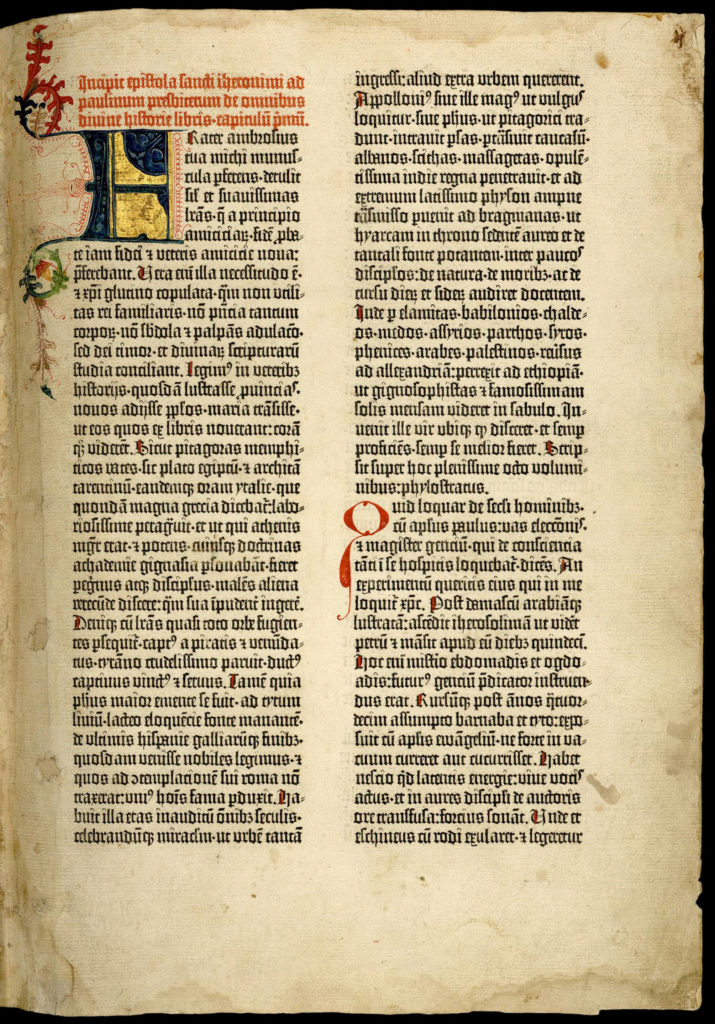 Incipit epistola sancti iheronimi ad
paulinum presbiterum de omnibus
divine historie libris. capitulū p̄mū.
FRater ambrosius
tua michi munus-
cula p̄ferens. detulit
sil' et suauissimas
lr̄as. q̄ a principio
amiciciaꝝ. fidē ꝓba-
te iam fidei ⁊ veteris amicicie noua:
p̄ferebant. Uera eni̅ illa necessitudo ē.
⁊ xp̄i glutino copulata. q̄m non vtili-
tas rei familiaris. nō p̄ncia tantum
corpoꝝ. nō sb̄dola ⁊ palpās adulacō.
sed dei timor. et diuinaꝝ scripturarū
studia conciliant. Legim⁹ in veterib⁊
historijs. quosdā lustrasse ꝓuincias.
nouos adijsse pp̄los. maria trāsisse.
ut eos quos ex libris nouerant: corā
q̄ꝫ viderēt. Sicut pitagoras memphi-
ticos vates. sic plato egiptū. ⁊ architā
tarentinū. eandemqꝫ oram ytalie. que
quondā magna grecia dicebat̄: labo-
riosissime peragᷓuit. et ut qui athenis
mgr̄ erat. ⁊ potens. cuiusqꝫ doctrinas
achademie gignasia ꝑsonabāt. fieret
peg̓nus atqꝫ discipl̓us. malēs aliena
verecūde discere: q̄m sua īpudent̓ ingerē.
Deniqꝫ cū lr̄as quasi toto orbe fugien-
tes ꝑsequit̄. capt⁹ a piratis ⁊ venūda-
tus. tyrāno crudelissimo paruit. duct⁹
captiuus vinct⁹ ⁊ seruus. Tamē quia
ph̄us maior emente se fuit. ad tytum
liuiū. lacteo eloquēcie fonte manantē.
de vltimis hispanie galliarūqꝫ finibꝫ.
quosdam venisse nobiles legimus. et
quos ad ꝯtemplacionē sui roma nō
traxerat: vni⁹ hoīs fama ꝑduxit. Ha-
buit illa etas inauditū ōnibꝫ seculis.
celebrandūqꝫ miraclm̄. ut vrbē tantā
ingressi: aliud extra vrbem quererent.
Appolloni⁹ siue ille mag⁹ ut vulgus
loquitur. siue ph̄us. ut pitagorici tra-
dunt. intrauit ꝑsas. ꝑtᷓsiuit caucasū.
albanos. scithas. massagetas. opulē-
tissima indie regna penetrauit. et ad
extremum latissimo physon ampne
tᷓsmisso ꝑuenit ad bragmanas. ut
hyarcam in throno sedentē aureo et de
tantali fonte potantem. inter paucos
discipl̓os: de natura. de moribꝫ. ac de
cursu dieꝝ et sideꝝ audiret docentem.
Inde ꝑ elamitas. babilonios. chalde-
os. medos. assyrios. parthos. syros.
phenices. arabes. palestinos. reūsus
ad allexandriā: perrexit ad ethiopiā.
ut gignosophistas ⁊ famosissimam
solis mensam videret in sabulo. In-
uenit ille vir vbiqꝫ qꝫ disceret. et semꝑ
proficiēs. semꝑ se melior fieret. Scrip-
sit super hoc plenissime octo volumi-
nibus: phylostratus.
Quid loquar de secl̓i hominibꝫ.
cū apl̓us paulus: vas eleccōnis.
⁊ magister genciū. qui de consciencia
tāti ī se hospitis loquebat̄. dicēs. An
experimentū queritis eius qui in me
loquit̄ xp̄c. Post damascū arabiāqꝫ
lustratā: ascēdit iherosolimā ut videt̓
petrū ⁊ māsit apud eū diebꝫ quindeci̅.
Hoc eni̅ mist̓io ebdomadis et ogdo-
adis: futur⁹ genciū p̄dicator instruen-
dus erat. Rursūqꝫ post ānos q̓tuor-
decim assumpto barnaba et tyto: expo-
suit cū apl̓is ewāgeliū. ne forte in va-
cuum curreret aut cucurrisset. Habet
nescio q̓d latentis energie: viue vocis
actus. et in aures discipl̓i de auctoris
ore transfusa: forcius sonāt. Unde et
eschineus cū rodi exularet. ⁊ legeretur